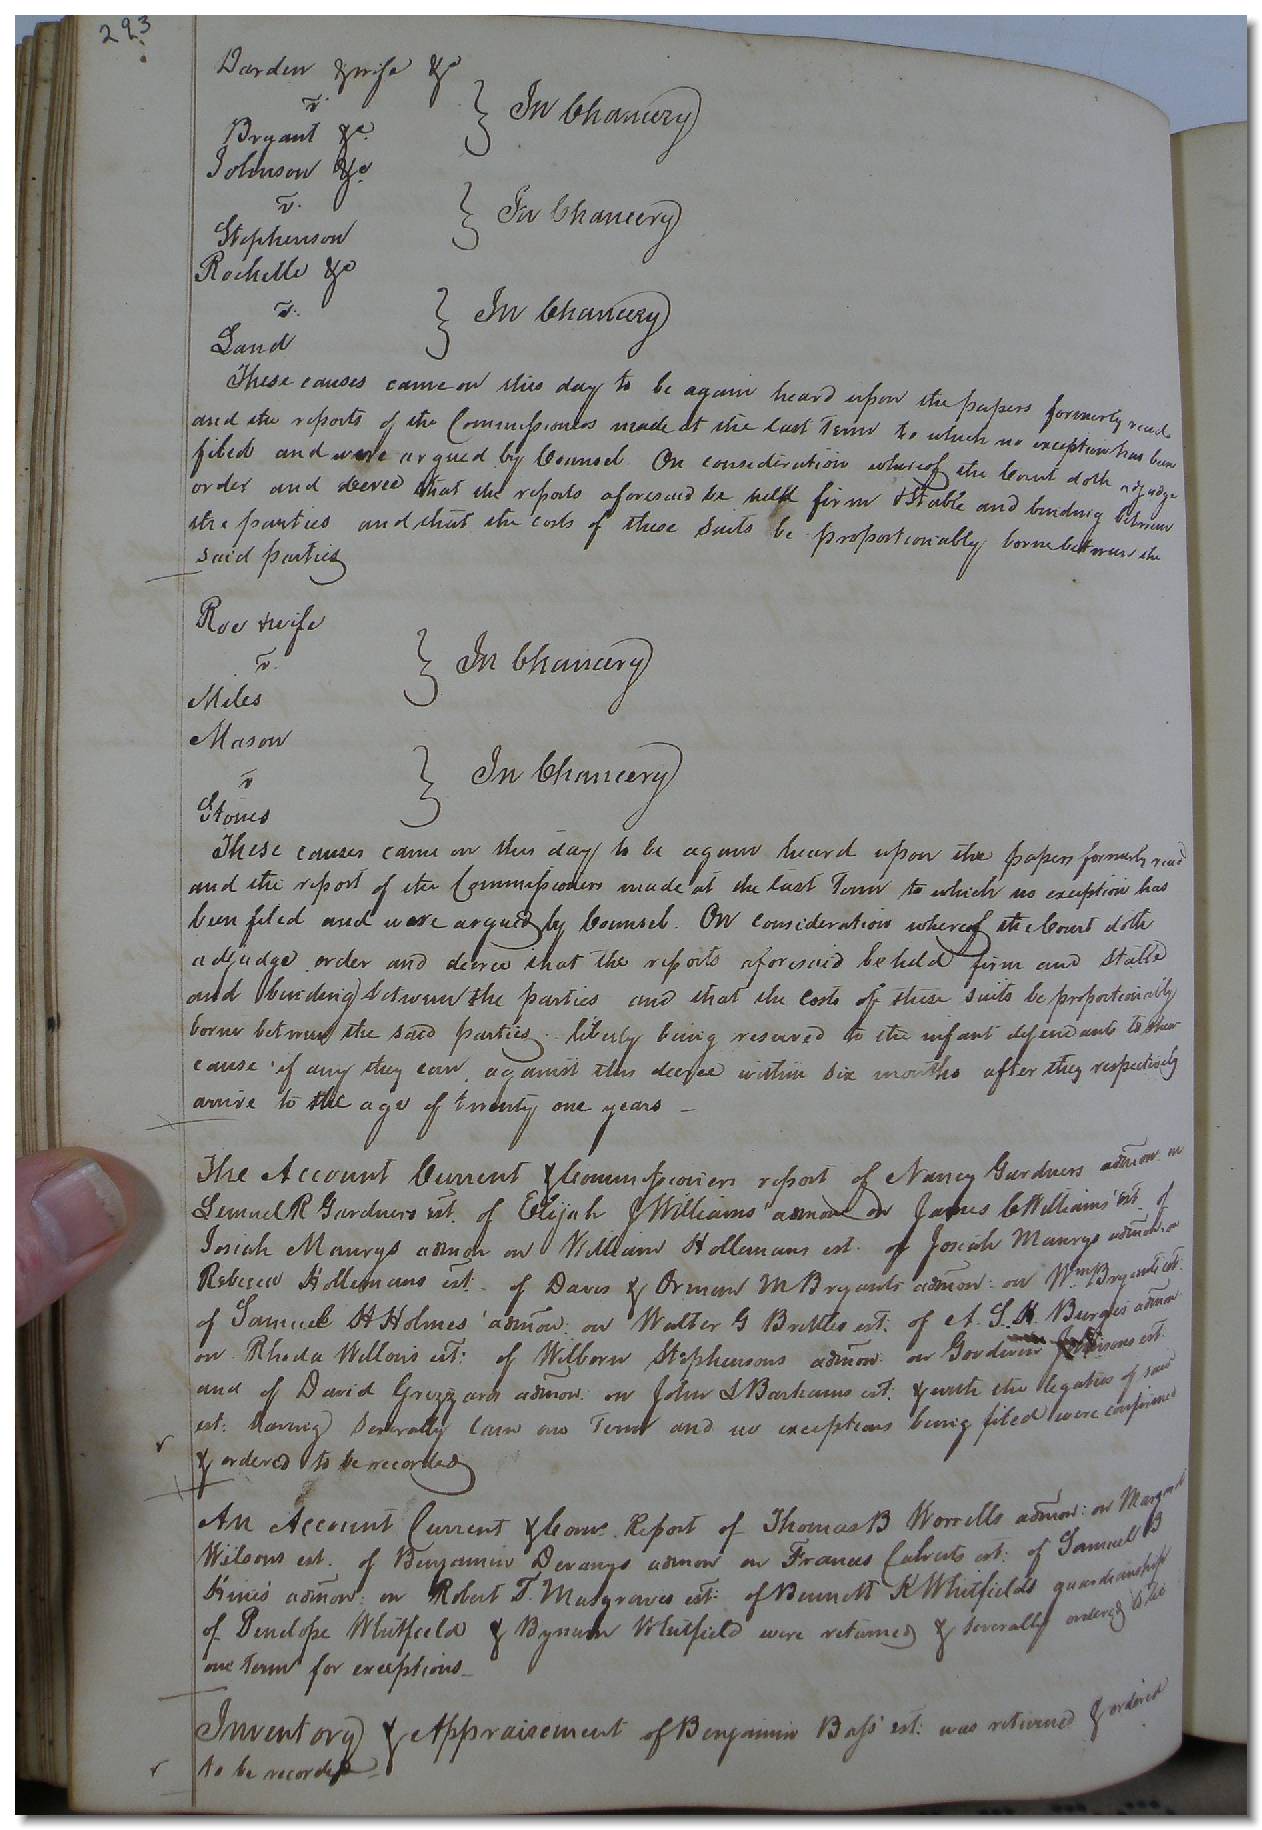 293
Darden & wife &c
v.
Bryant &c.
} In Chancery
Johnson &c
v.
Stephenson
} In Chancery
Rochelle &c
v.
Land
} In Chancery
These causes came on this day to be again heard upon the papers formerly read
and the reports of the Commissioners made at the last Term to which no exception has been
filed and were argued by Counsel. On consideration whereof the Court doth adjudge
order and decree that the reports aforesaid be held firm & Stable and binding between
the parties and that the costs of these Suits be proportionably borne between the
said parties
Roe & wife
v.
Miles
} In Chancery
Mason
v
Stones
} In Chancery
These causes came on this day to be again heard upon the papers formerly read
and the report of the Commissioners made at the last Term to which no exception has
been filed and were argued by Counsel. On consideration whereof the Court doth
adjudge order and decree that the reports aforesaid be held firm and Stable
and binding between the parties and that the costs of these suits be proportionably
borne between the said parties. liberty being reserved to the infant defendants to shew
cause if any they can against this decree within six months after they respectively
arrive to the age of twenty one years
The Account Current & Commissioners report of Nancy Gardners admon on
Lemuel R Gardners est. of Elijah J Williams' admon on James C Williams' est. of
Josiah Maurys admon on William Hollemans est. of Josiah Maurys admon on
Rebecca Hollemans est. of Davis & Orman M Bryants admon: on Wm Bryants est:
of Samuel H Holmes' admon: on Walter G Brittles est: of A. S. H. Burges admon
on Rhoda Wellons est: of Wilborn Stephensons admon on Gordwin est:
and of David Grizzard admon: on John S Barhams est: & with the legatees of said
est: having Severally lain one Term and no exceptions being filed were confirmed
& ordered to be recorded
An Account Current & Coms Report of Thomas B Worrells admon: on Margaret
Wilsons est. of Benjamin Devanys admon on Frances Calverts est: of Samuel B
Hines admon: on Robert T. Musgraves est: of Bennett K Whitfields guardianship
of Penelope Whitfield & Bynum Whitfield were returned & Severally ordered to lie
one Term for exceptions
Inventory & Appraisement of Benjamin Bass' est: was returned & ordered
to be recorded